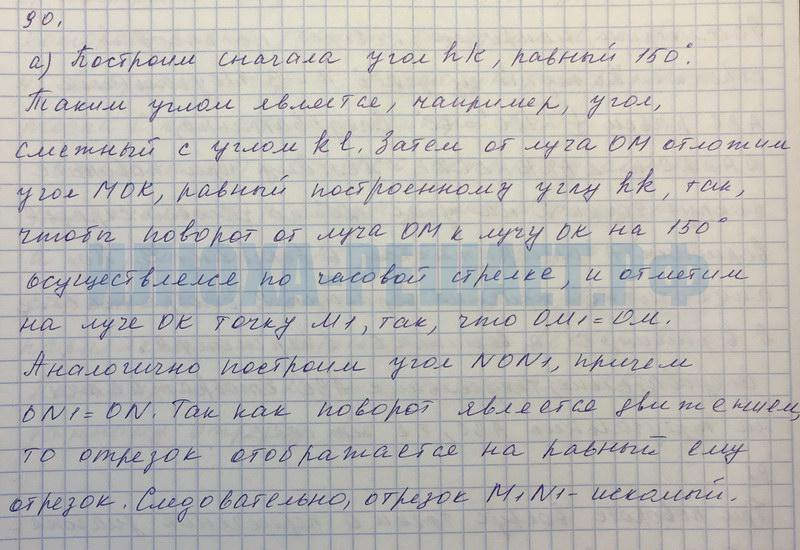 90.
а) Построим сначала угол hk, равный 150°.
Таким углом является, например, угол,
смежный с углом kl. Затем от луча ОМ отложим
угол МОК, равный построенному углу hk, так,
чтобы поворот от луча ОМ к лучу ОК на 150°
осуществлялся по часовой стрелке, и отметим
ИЛЮХА-РЕШАЕТ.РФ
на луче ОК точку М1, так, что ОМ1=ОМ.
Аналогично построим угол NON1, причем
ON1=ON. Так как поворот является движением,
то отрезок отображается на равный ему
отрезок. Следовательно, отрезок M1N1- искомый.